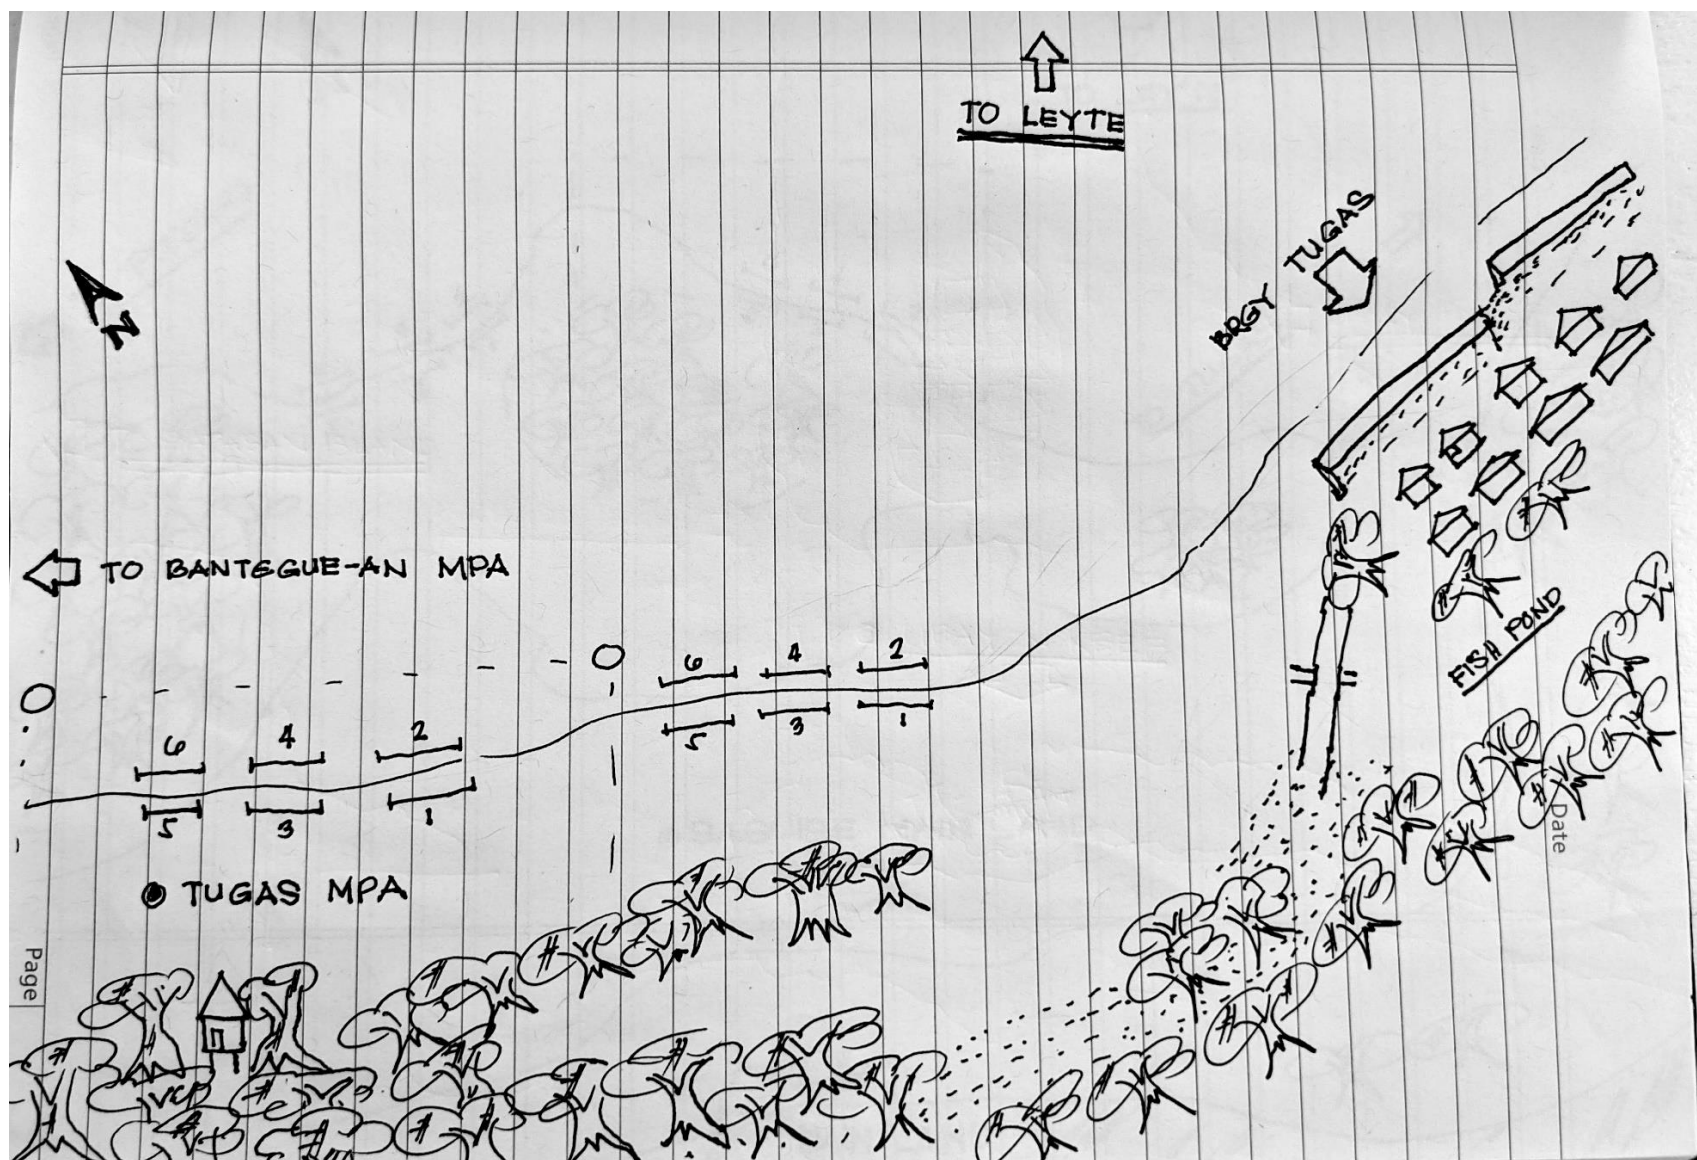 TO LEYTE
BRGY TUGAS
N
TO BANTEGUE-AN MPA
FISH POND
6 4 2
5 3 1
6 4 2
5 3 1
TUGAS MPA
Date
Page